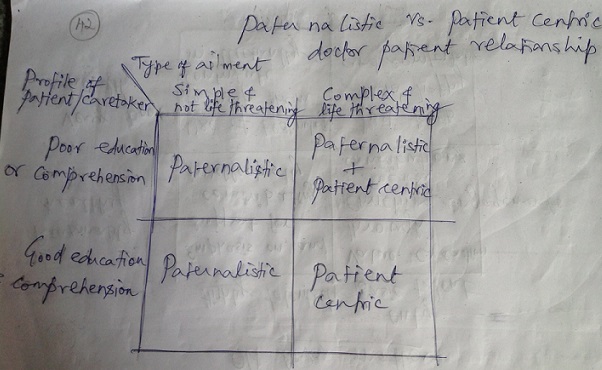 42
Paternalistic vs. Patient Centric
doctor patient relationship
Type of ailment
Profile of
patient/caretaker
Simple &
not life threatening
Complex &
life threatening
Poor education
or comprehension
Paternalistic
Paternalistic
+
Patient centric
Good education
comprehension
Paternalistic
Patient
centric